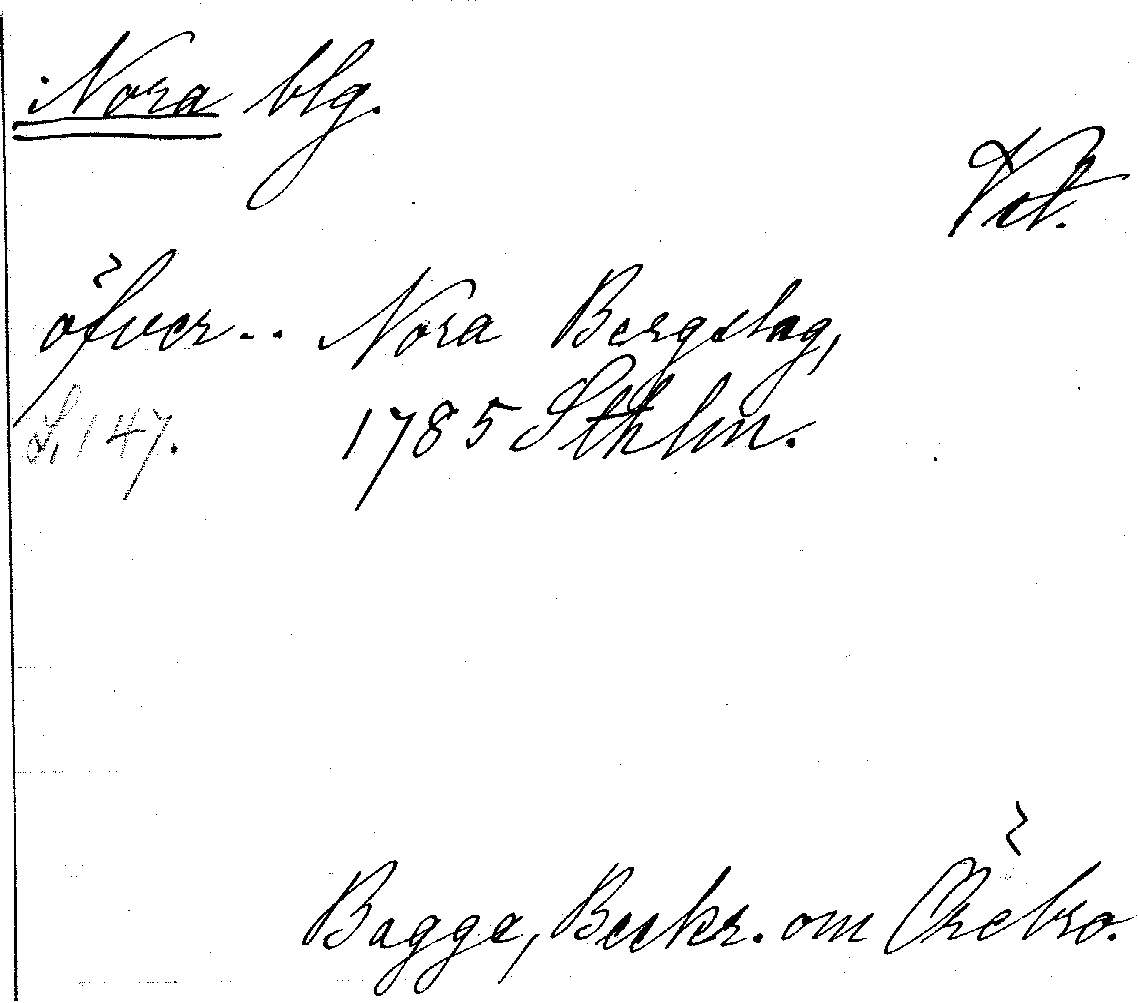 Nora blg.
Vst.
öfver.. Nora Bergslag,
S. 147. 1785 Sthlm.
Bagge, Beskr. om Örebro.